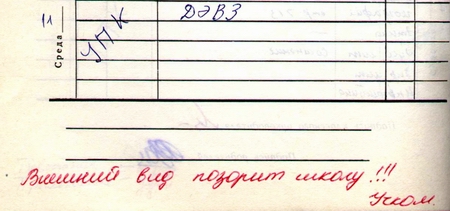 11
Среда
УПК
ДЭВЗ
Внешний вид позорит школу!!!
Учком.